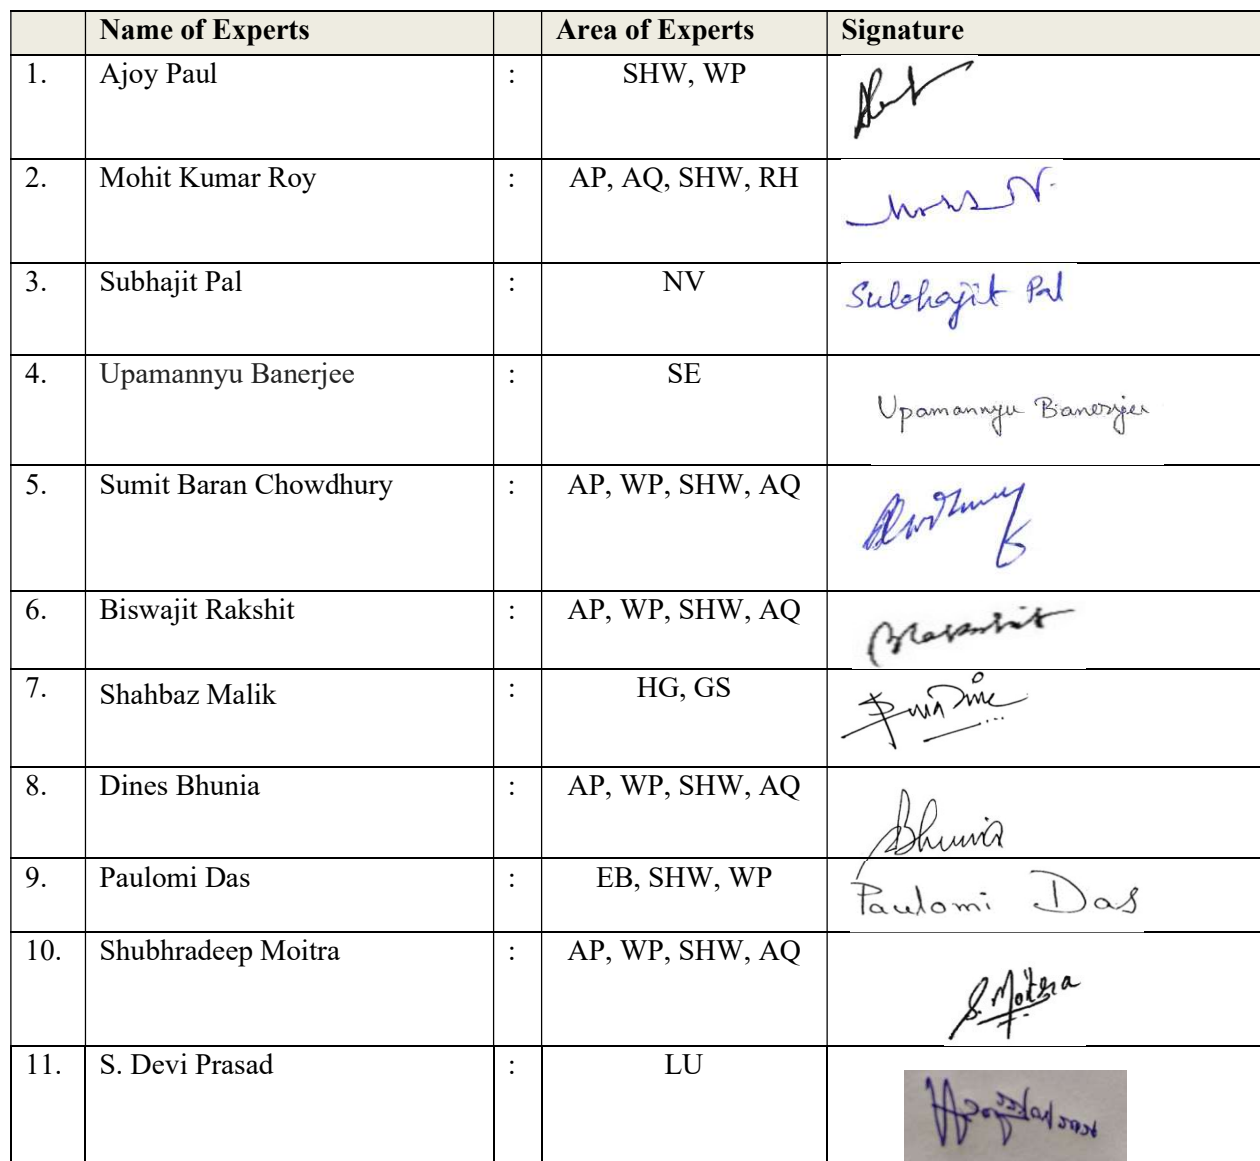 Name of Experts Area of Experts Signature
1. Ajoy Paul : SHW, WP
2. Mohit Kumar Roy : AP, AQ, SHW, RH
3. Subhajit Pal : NV Subhajit Pal
4. Upamannyu Banerjee : SE Upamannyu Banerjee
5. Sumit Baran Chowdhury : AP, WP, SHW, AQ
6. Biswajit Rakshit : AP, WP, SHW, AQ
7. Shahbaz Malik : HG, GS
8. Dines Bhunia : AP, WP, SHW, AQ Bhunia
9. Paulomi Das : EB, SHW, WP Paulomi Das
10. Shubhradeep Moitra : AP, WP, SHW, AQ S. Moitra
11. S. Devi Prasad : LU